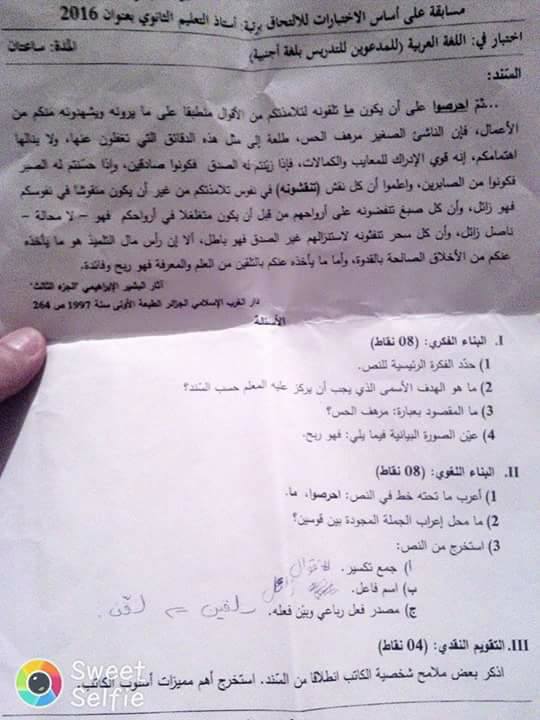 مسابقة على أساس الاختبارات للالتحاق برتبة أستاذ التعليم الثانوي بعنوان 2016
اختبار في: اللغة العربية (للمدعوين للتدريس بلغة أجنبية) المدة: ساعتان
السّند:
...ثمّ احرصوا على أن يكون ما تلقونه لتلامذتكم من الأقوال منطبقا على ما يرونه ويشهدونه منكم من
الأعمال، فإن الناشئ الصغير مرهف الحس، طلعة إلى مثل هذه الدقائق التي تغفلون عنها، ولا ينالها
اهتمامكم، إنه قوي الإدراك للمعايب والكمالات، فإذا زيّنتم له الصدق فكونوا صادقين، وإذا حسّنتم له الصبر
فكونوا من الصابرين، واعلموا أن كل نقش (تنقشونه) في نفوس تلامذتكم من غير أن يكون منقوشا في نفوسكم
فهو زائل، وأن كل صبغ تنفضونه على أرواحهم من قبل أن يكون متغلغلا في أرواحكم فهو – لا محالة –
ناصل زائل، وأن كل سحر تنفثونه لاستنزالهم غير الصدق فهو باطل، ألا إن رأس مال التلميذ هو ما يأخذه
عنكم من الأخلاق الصالحة بالقدوة، وأما ما يأخذه عنكم بالتلقين من العلم والمعرفة فهو ربح وفائدة.
آثار البشير الإبراهيمي "الجزء الثالث"
دار الغرب الإسلامي الجزائر الطبعة الأولى سنة 1997 ص 264
الأسئلة
I. البناء الفكري: (08 نقاط)
1) حدّد الفكرة الرئيسية للنص.
2) ما هو الهدف الأسمى الذي يجب أن يركز عليه المعلم حسب السّند؟
3) ما المقصود بعبارة: مرهف الحس؟
4) عيّن الصورة البيانية فيما يلي: فهو ربح.
II. البناء اللغوي: (08 نقاط)
1) أعرب ما تحته خط في النص: احرصوا، ما.
2) ما محل إعراب الجملة الموجودة بين قوسين؟
3) استخرج من النص:
أ) جمع تكسير. الأقوال
ب) اسم فاعل.
ج) مصدر فعل رباعي وبيّن فعله. تلقين = لقّن.
III. التقويم النقدي: (04 نقاط)
اذكر بعض ملامح شخصية الكاتب انطلاقا من السّند. استخرج أهم مميزات أسلوب الكاتب.
Sweet
Selfie